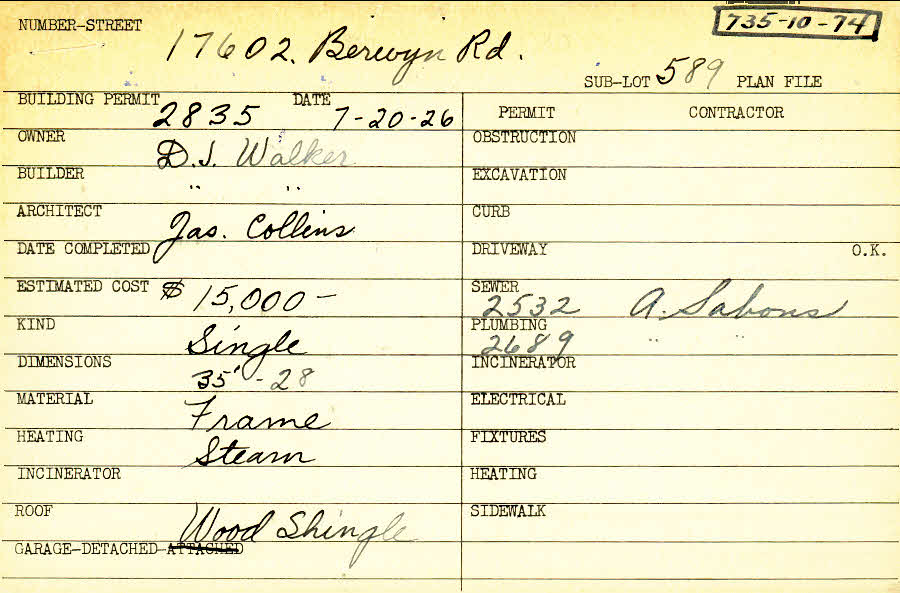 735-10-74
NUMBER-STREET 17602. Berwyn Rd.
SUB-LOT 589 PLAN FILE
BUILDING PERMIT 2835 DATE 7-20-26
PERMIT CONTRACTOR
OWNER D.J. Walker
OBSTRUCTION
BUILDER " "
EXCAVATION
ARCHITECT Jas. Collins
CURB
DATE COMPLETED
DRIVEWAY O.K.
ESTIMATED COST $ 15,000-
SEWER 2532 A. Sabons
KIND Single
PLUMBING 2689 " "
DIMENSIONS 35'-28
INCINERATOR
MATERIAL Frame
ELECTRICAL
HEATING Steam
FIXTURES
INCINERATOR
HEATING
ROOF Wood Shingle
SIDEWALK
GARAGE-DETACHED-ATTACHED